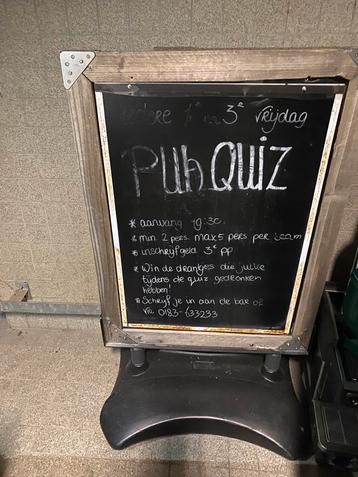 iedere 1e en 3e vrijdag
PUb QUIZ
* aanvang 19:30.
* min. 2 pers. max 5 pers per team
* inschrijfgeld 3€ pp
* Win de drankjes die jullie
tijdens de quiz gedronken
hebben!
* Schrijf je in aan de bar of
via: 0183-633233